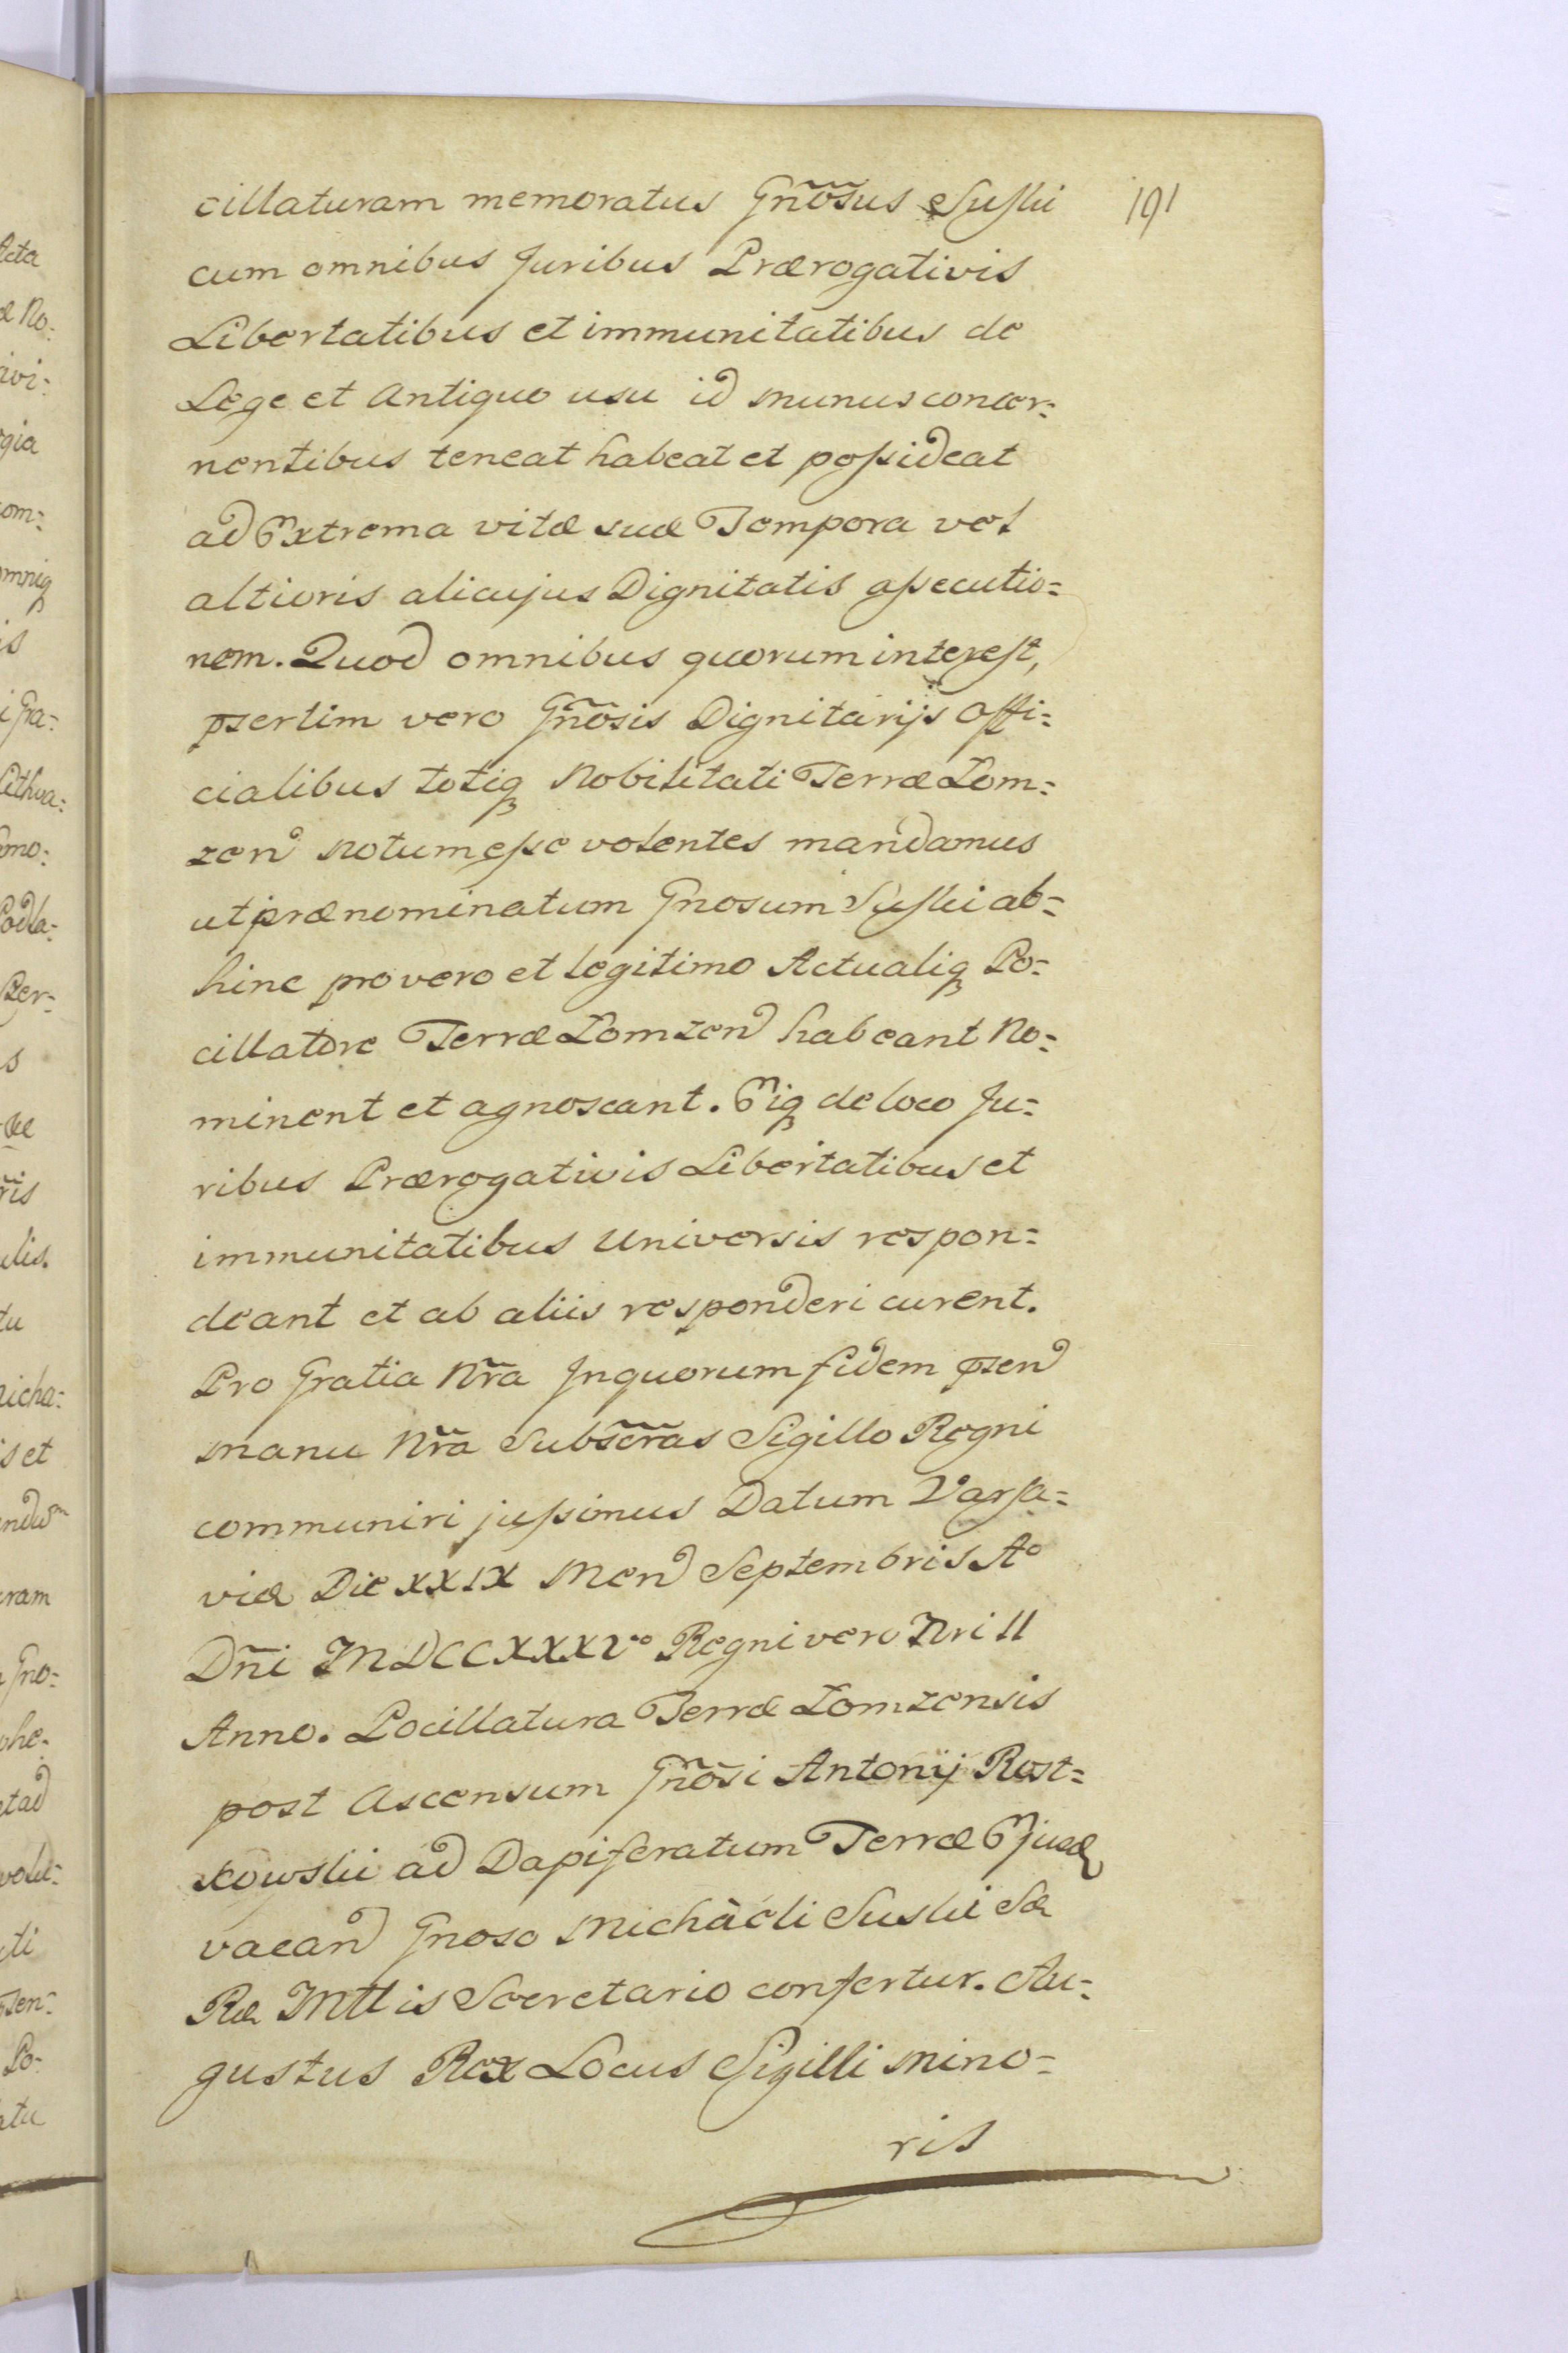 cillaturam memoratus Gño͠sus Suski
191
cum omnibus Juribus Prærogativis
Libertatibus et immunitatibus de
Lege et Antiquo usu id munus concer=
nentibus teneat habeat et possideat
ad Extrema vitæ suæ Tempora vel
altioris alicujus Dignitatis assecutio=
nem. Quod omnibus quorum interest,
p̄sertim vero Gñosis Dignitarijs Offi=
cialibus totiq3 Nobilitati Terræ Lom=
zen notum esse volentes mandamus
ut prænominatum Gnosum Suski ab=
hinc pro vero et legitimo Actualiq3 Po=
cillatore Terræ Lomzen habeant No=
minent et agnoscant. Eiq3 de loco Ju=
ribus Prærogativis Libertatibus et
immunitatibus Universis respon=
deant et ab aliis responderi curent.
Pro Gratia Nr̃a In quorum fidem p̄sen
manu Nr̃a Subscr̃as Sigillo Regni
communiri jussimus Datum Varsa=
viæ Die XXIX Men Septembris Aº
Dñi MDCCXXXVº Regni vero Nri II
Anno. Pocillatura Terræ Lomzensis
post Ascensum Gño͠si Antonij Rost=
kowski ad Dapiferatum Terræ Ejusd
vacan Gnoso Michaeli Suski Sæ
Ræ Mttis Secretario confertur. Au=
gustus Rex Locus Sigilli mino=
ris
Acta
æ No=
ivi=
gia
om=
omniq3
is
i Gra=
Lithva=
omo=
Podla=
Per=
s
væ
r̃is
ulis.
tu
Micha=
s et
endum
uram
Gno=
ohe=
etad
volu=
iti
sen=
Po=
atu